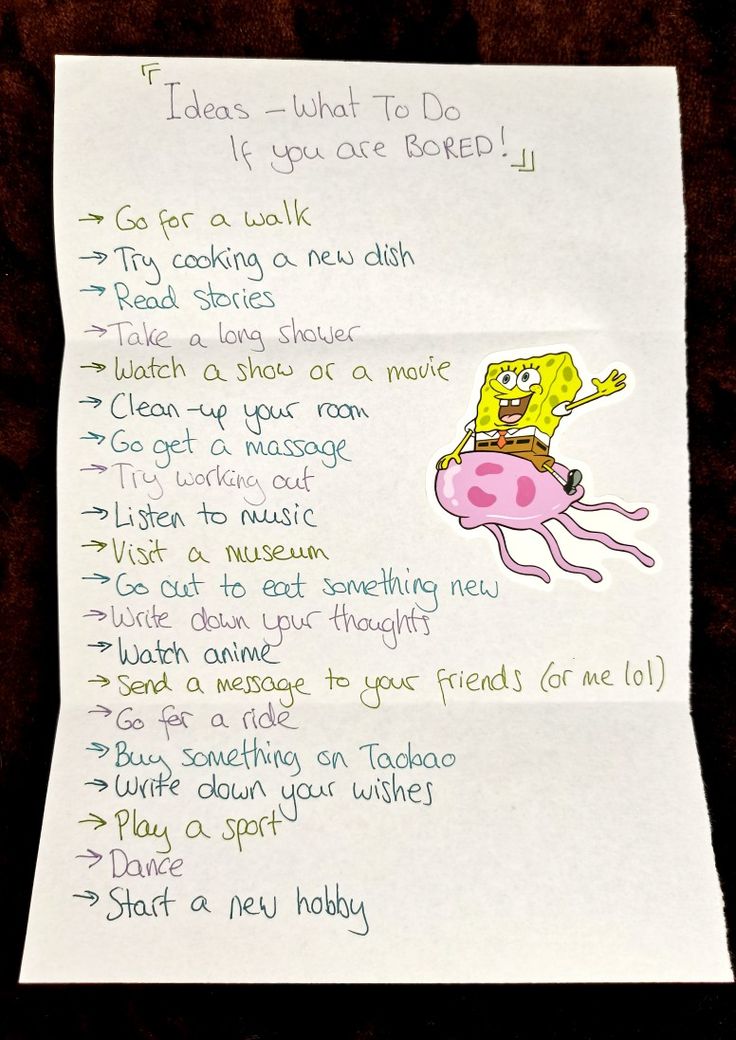 『Ideas - What To Do
If you are BORED!』
→ Go for a walk
→ Try cooking a new dish
→ Read stories
→ Take a long shower
→ Watch a show or a movie
→ Clean-up your room
→ Go get a massage
→ Try working out
→ Listen to music
→ Visit a museum
→ Go out to eat something new
→ Write down your thoughts
→ Watch anime
→ Send a message to your friends (or me lol)
→ Go for a ride
→ Buy something on Taobao
→ Write down your wishes
→ Play a sport
→ Dance
→ Start a new hobby